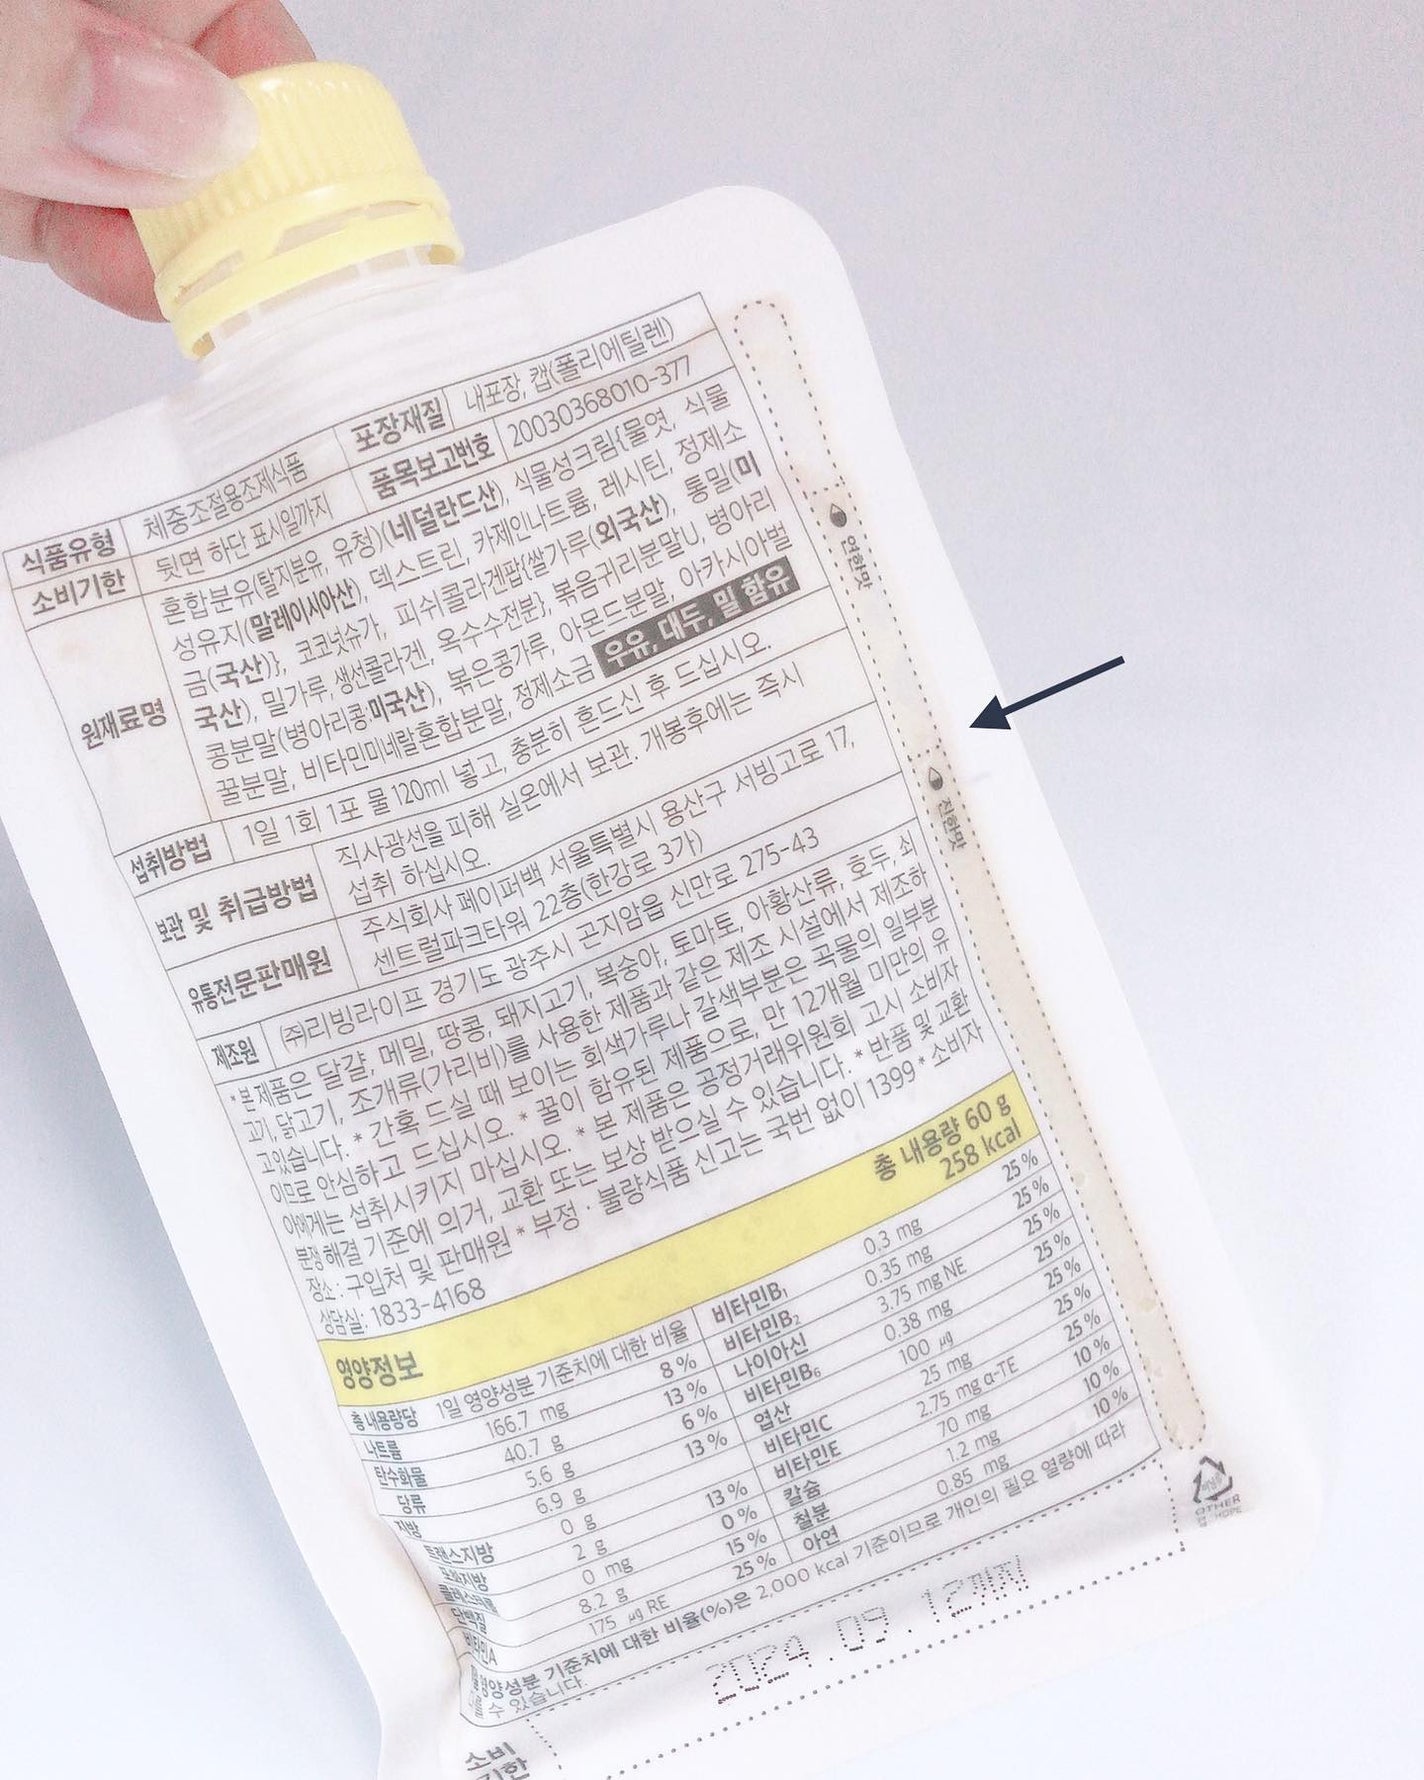 식품유형 체중조절용조제식품 포장재질 내포장, 캡(폴리에틸렌)
소비기한 뒷면 하단 표시일까지 품목보고번호 20030368010-377
원재료명 혼합분유(탈지분유, 유청)(네덜란드산), 식물성크림{물엿, 식물
성유지(말레이시아산), 덱스트린, 카제인나트륨, 레시틴, 정제소
금(국산)}, 코코넛슈가, 피쉬콜라겐팝{쌀가루(외국산), 통밀(미
국산), 밀가루, 생선콜라겐, 옥수수전분}, 볶음귀리분말U, 병아리
콩분말(병아리콩:미국산), 볶은콩가루, 아몬드분말, 아카시아벌
꿀분말, 비타민미네랄혼합분말, 정제소금 우유, 대두, 밀 함유
섭취방법 1일 1회 1포 물 120ml 넣고, 충분히 흔드신 후 드십시오.
보관 및 취급방법 직사광선을 피해 실온에서 보관. 개봉후에는 즉시
섭취 하십시오.
유통전문판매원 주식회사 페이퍼백 서울특별시 용산구 서빙고로 17,
센트럴파크타워 22층(한강로 3가)
제조원 ㈜리빙라이프 경기도 광주시 곤지암읍 신만로 275-43
*본제품은 달걀, 메밀, 땅콩, 돼지고기, 복숭아, 토마토, 아황산류, 호두, 쇠
고기, 닭고기, 조개류(가리비)를 사용한 제품과 같은 제조 시설에서 제조하
고있습니다. * 간혹 드실 때 보이는 회색가루나 갈색부분은 곡물의 일부분
이므로 안심하고 드십시오. * 꿀이 함유된 제품으로, 만 12개월 미만의 유
아에게는 섭취시키지 마십시오. * 본 제품은 공정거래위원회 고시 소비자
분쟁 해결 기준에 의거, 교환 또는 보상 받으실 수 있습니다. * 반품 및 교환
장소: 구입처 및 판매원 * 부정 · 불량식품 신고는 국번 없이 1399 * 소비자
상담실: 1833-4168
영양정보 총 내용량 60 g
258 kcal
총 내용량당 1일 영양성분 기준치에 대한 비율
나트륨 166.7 mg 8 %
탄수화물 40.7 g 13 %
당류 5.6 g 6 %
지방 6.9 g 13 %
트랜스지방 0 g
포화지방 2 g 13 %
콜레스테롤 0 mg 0 %
단백질 8.2 g 15 %
비타민A 175 μg RE 25 %
비타민B₁ 0.3 mg 25 %
비타민B₂ 0.35 mg 25 %
나이아신 3.75 mg NE 25 %
비타민B₆ 0.38 mg 25 %
엽산 100 μg 25 %
비타민C 25 mg 25 %
비타민E 2.75 mg α-TE 25 %
칼슘 70 mg 10 %
철분 1.2 mg 10 %
아연 0.85 mg 10 %
1일 영양성분 기준치에 대한 비율(%)은 2,000 kcal 기준이므로 개인의 필요 열량에 따라
다를 수 있습니다.
소비
기한
2024.09.12까지
연한맛
진한맛
OTHER